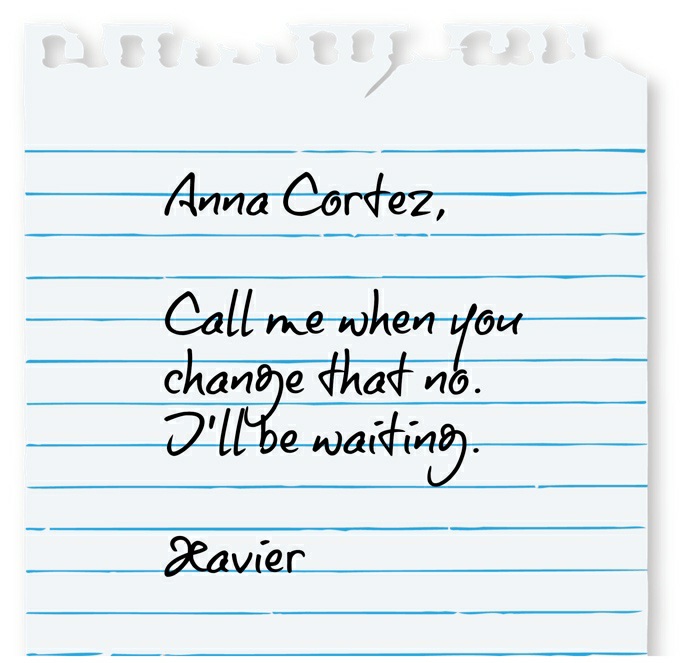 Anna Cortez,
Call me when you
change that no.
I'll be waiting.
Xavier